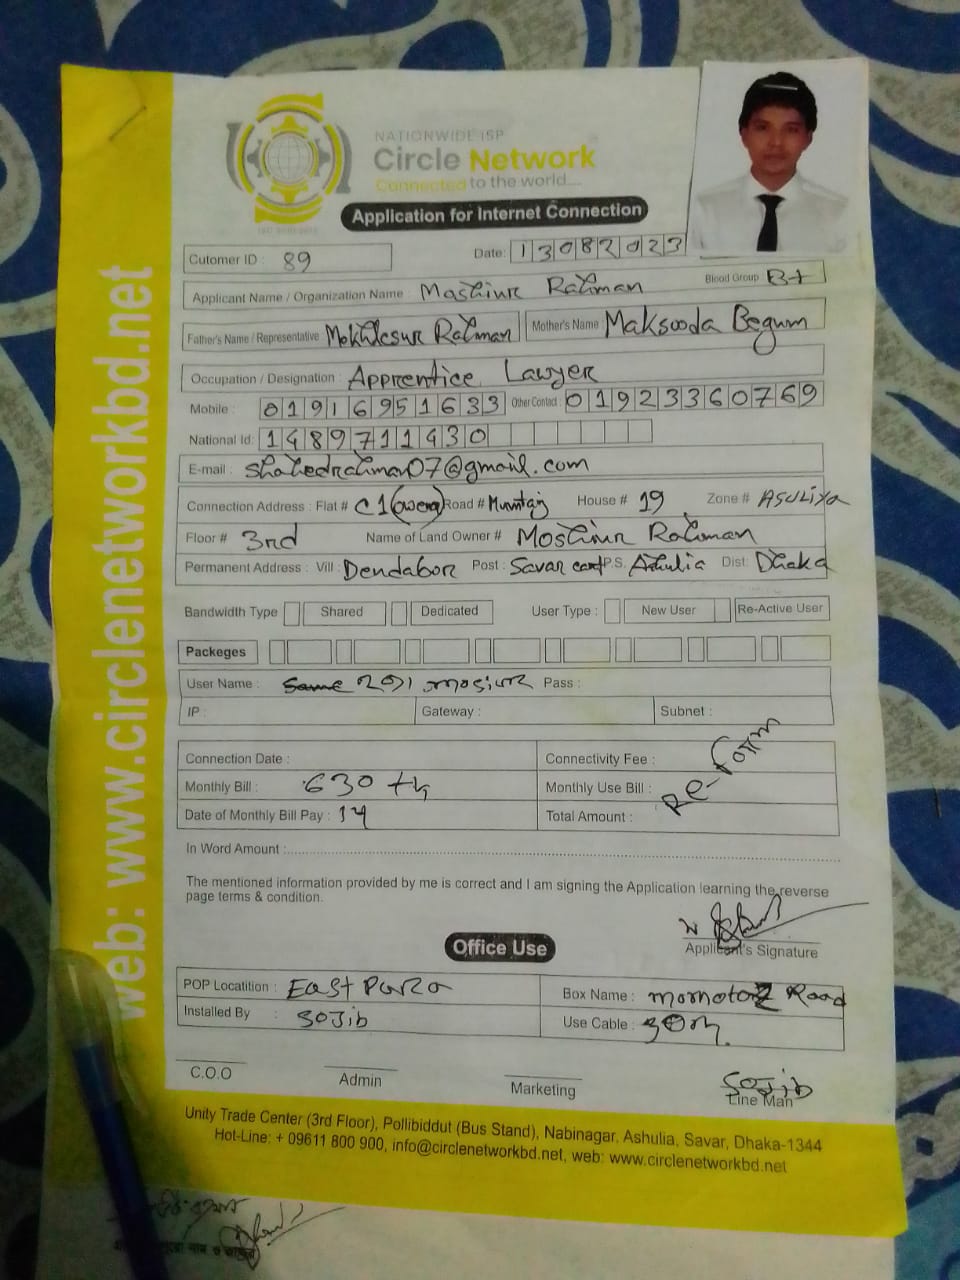 NATIONWIDE ISP
Circle Network
Connected to the world....
Application for Internet Connection
web: www.circlenetworkbd.net
Cutomer ID : 89 Date: 13082023
Applicant Name / Organization Name Moshiur Rahman Blood Group B+
Father's Name / Representative Mokhlesur Rahman Mother's Name Maksooda Begum
Occupation / Designation : Apprentice Lawyer
Mobile : 01916951633 Other Contact 01923360769
National Id: 1489711430
E-mail : shahedrahman07@gmail.com
Connection Address : Flat # C1 Road # House # 19 Zone # ASULIYA
Floor # 3rd Name of Land Owner # Moshiur Rahman
Permanent Address : Vill : Dendabor Post : Savar cant P.S. Ashulia Dist: Dhaka
Bandwidth Type Shared Dedicated User Type : New User Re-Active User
Packeges
User Name : Pass :
IP : Gateway : Subnet :
Connection Date : Connectivity Fee :
Monthly Bill : 630 tk Monthly Use Bill :
Date of Monthly Bill Pay : 14 Total Amount :
Re-form
In Word Amount :
The mentioned information provided by me is correct and I am signing the Application learning the reverse
page terms & condition.
Applicant's Signature
Office Use
POP Locatition : East Para Box Name : Road
Installed By : SOJib Use Cable : 30m
C.O.O Admin Marketing SOJib
Line Man
Unity Trade Center (3rd Floor), Pollibiddut (Bus Stand), Nabinagar, Ashulia, Savar, Dhaka-1344
Hot-Line: + 09611 800 900, info@circlenetworkbd.net, web: www.circlenetworkbd.net